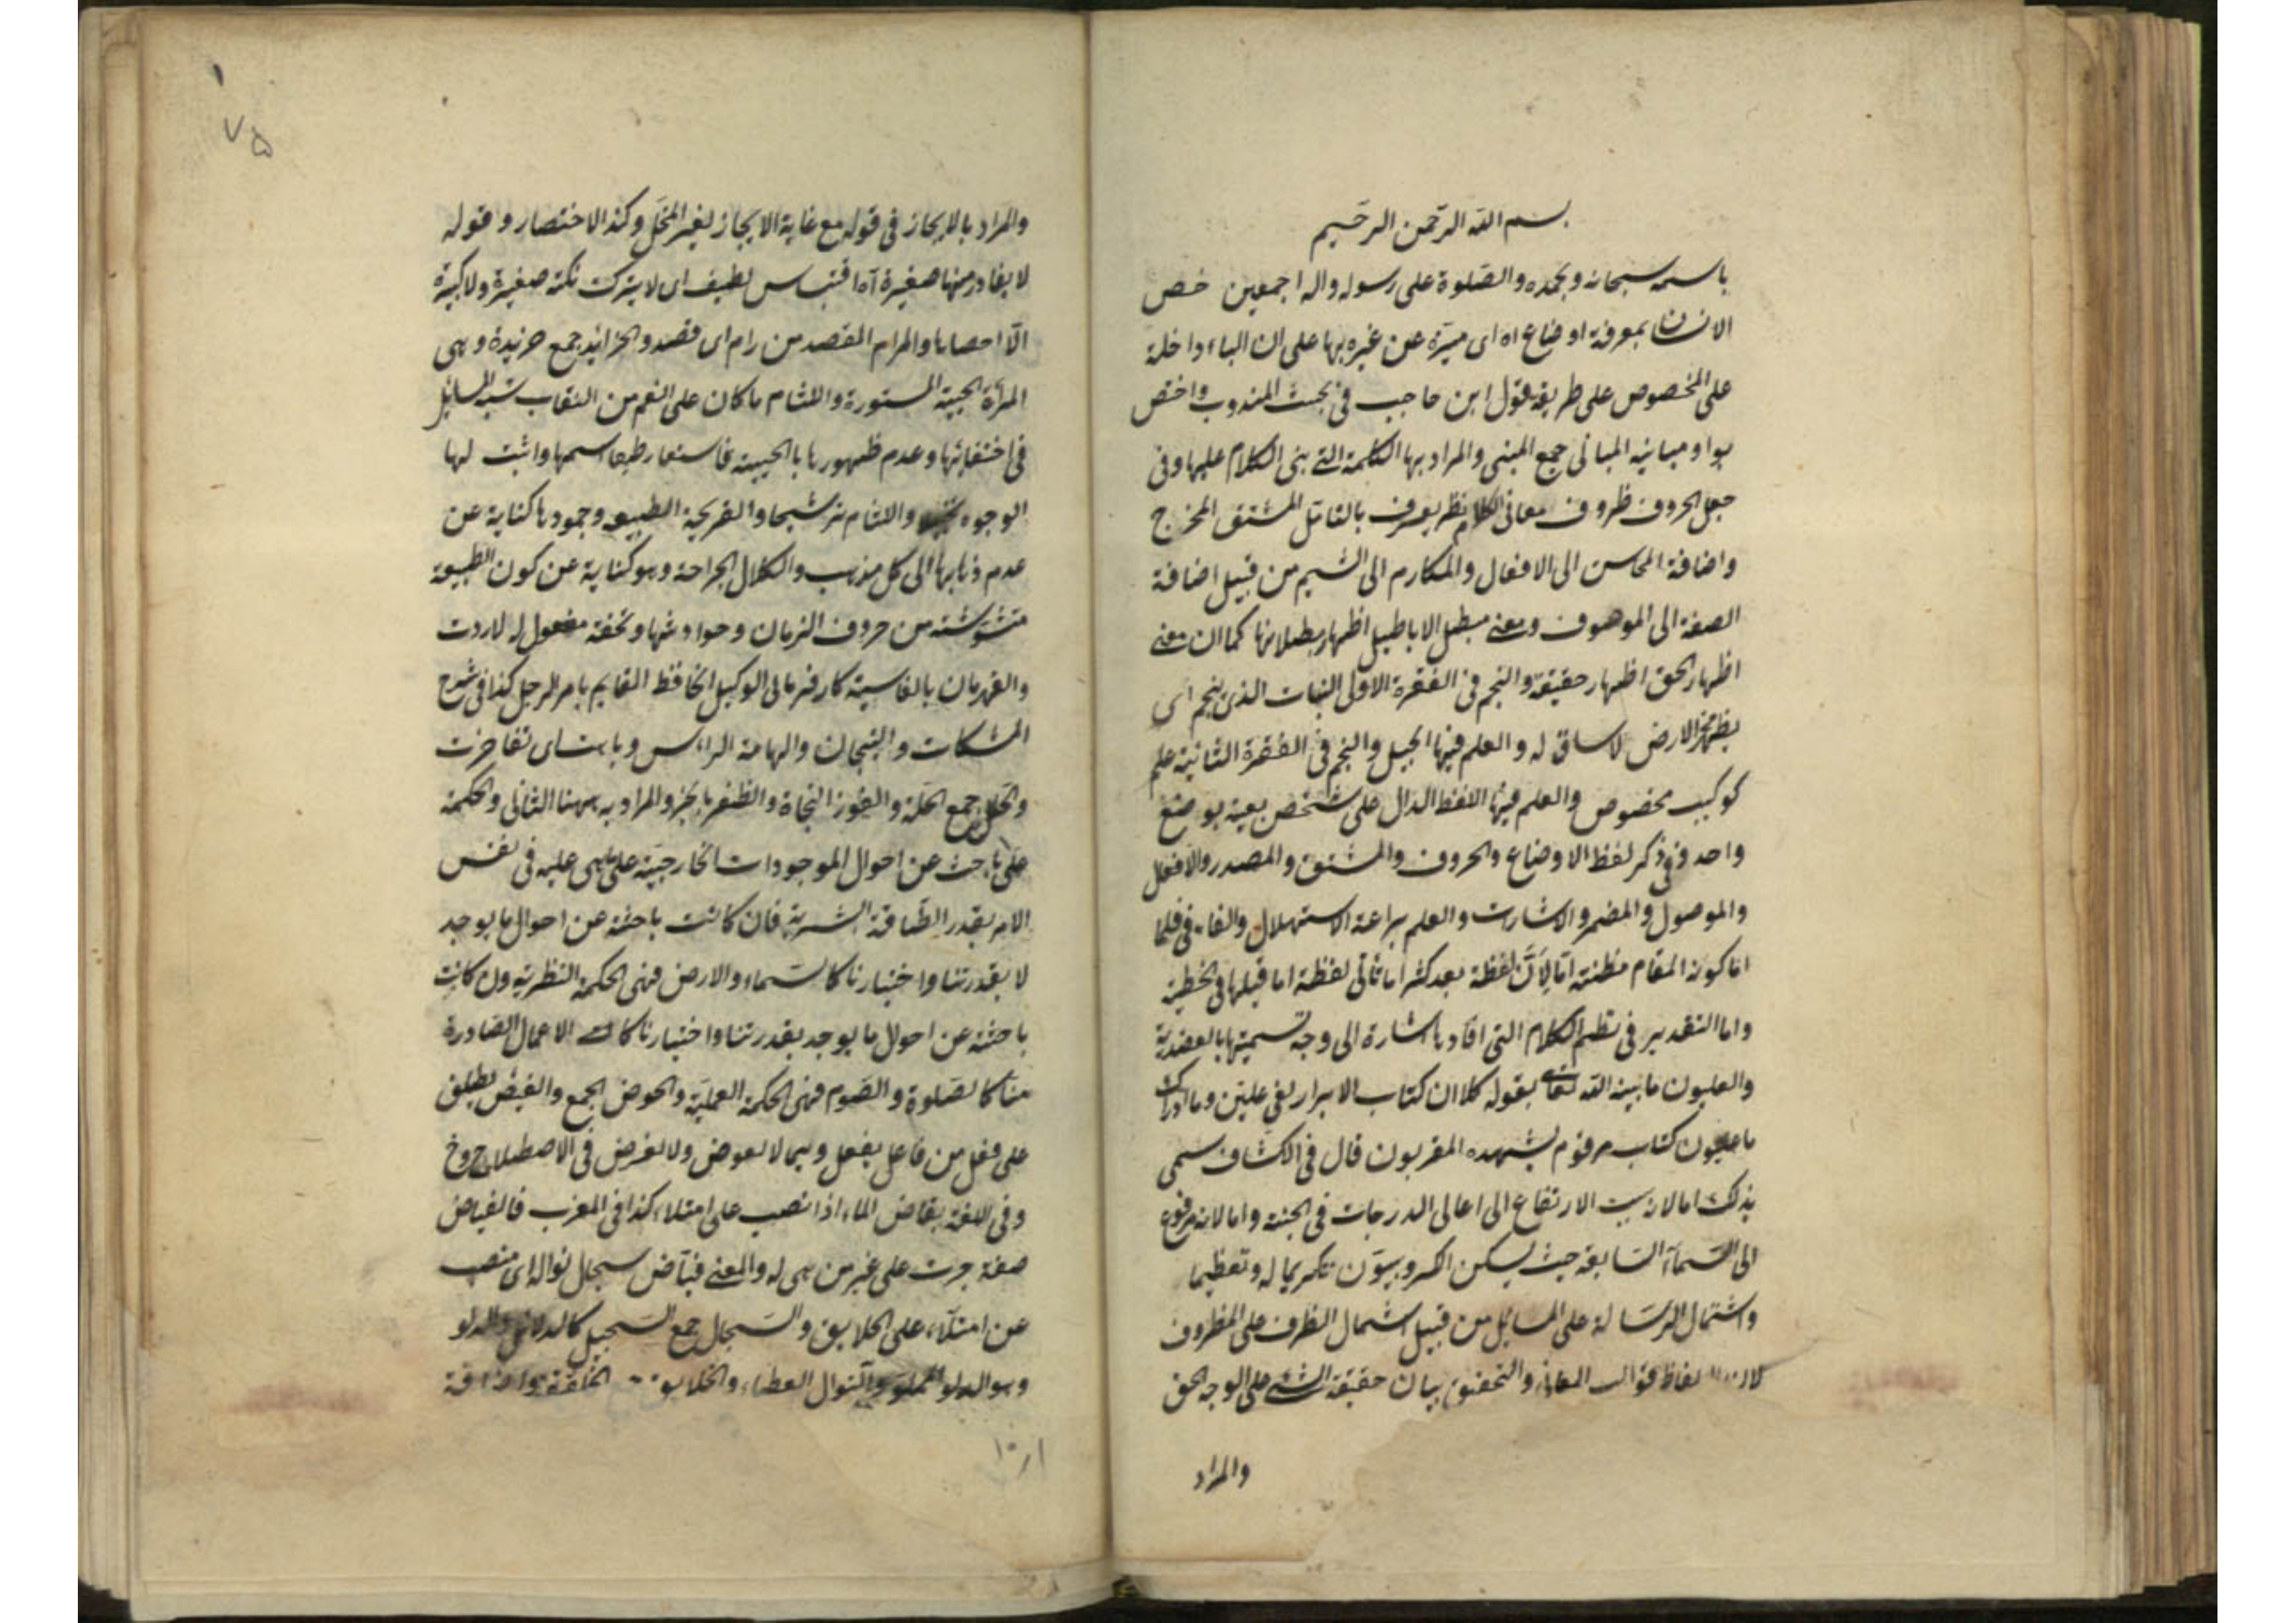 بسم الله الرحمن الرحيم
باسمه سبحانه وبحمده والصلوة على رسوله واله اجمعين خص
الانسان بمعرفة اوضاع اه اى ميزه عن غيره بها على ان الباء داخلة
على المخصوص على طريقة قول ابن حاجب في بحث المندوب واختص
بوا ومبانيه المبانى جمع المبنى والمراد بها الكلمة التى بنى الكلام عليها وفى
جعل الحروف ظروف معانى الكلام نظر يعرف بالتأمل المشتق المخرج
واضافة المحاسن الى الافعال والمكارم الى الشيم من قبيل اضافة
الصفة الى الموصوف ومعنى مبطل الاباطيل اظهار بطلانها كما ان معنى
اظهار الحق اظهار حقيقة والنجم فى الفقرة الاولى النبات الذى ينجم اى
يظهر من الارض لا ساق له والعلم فيها الجبل والنجم فى الفقرة الثانية علم
كوكب مخصوص والعلم فيها اللفظ الدال على شخص بعينه بوضع
واحد وفى ذكر لفظ الاوضاع والحروف والمشتق والمصدر والافعال
والموصول والمضمر والاشارت والعلم براعة الاستهلال والفاء فى فلما
اما كون المقام مظنة اما لان لفظة بعد كثر اما ثانى لفظة اما قبلها فى الخطبة
واما التقدير فى نظم الكلام التى افادها اشارة الى وجه تسميتها بالعضدية
والعليون ما بينه الله تعالى بقوله كلا ان كتاب الابرار لفى عليين وما ادراك
ما عليون كتاب مرقوم يشهده المقربون قال فى الكشاف سمى
بذلك اما لانه سبب الارتفاع الى اعالى الدرجات فى الجنة واما لانه مرفوع
الى السماء السابعة حيث يسكن الكروبيون تكريما له وتعظيما
واشتمال الرسالة على المسائل من قبيل اشتمال الظرف على المظروف
لان الالفاظ قوالب المعانى والتحقيق بيان حقيقة الشئ على الوجه الحق
والمراد
٧٥
والمراد بالايجاز فى قوله مع غاية الايجاز لغير المخل وكذا الاختصار وقوله
لا يغادر منها صغيرة آه اقتباس لطيف اى لا يترك نكتة صغيرة ولا كبيرة
الا احصاها والمرام المقصد من رام اى قصد والخرائد جمع خريدة وهى
المرأة الحيية المستورة واللثام ما كان على الفم من النقاب شبه المسائل
فى اختفائها وعدم ظهورها بالحبيبة فاستعار طبعا اسمها واثبت لها
الوجوه واللثام ترشيحا والقريحة الطبيعة وجمودها كناية عن
عدم ذهابها الى كل مذهب والكلال الجراحة وهو كناية عن كون الطبيعة
متشوشة من حروف الزمان وحوادثها وتحفة مفعول له لاردت
والقهرمان بالفارسية كارفرماى الوكيل الحافظ القايم بامر الرجل كذا فى شرح
المشكات والتيجان والهامة الرأس وباهت اى تفاخرت
والحلل جمع الحلة والفوز النجاة والظفر بالخير والمراد به ههنا الثانى والحكمة
علم باحث عن احوال الموجودات الخارجية على ما هى عليه فى نفس
الامر بقدر الطاقة البشرية فان كانت باحثة عن احوال ما يوجد
لا بقدرتنا واختيارنا كالسماء والارض فهى الحكمة النظرية وان كانت
باحثة عن احوال ما يوجد بقدرتنا واختيارنا الاعمال الصادرة
منا كالصلوة والصوم فهى الحكمة العملية والحوض الجمع والفيض يطلق
على فعل من فاعل يفعل دائما لا لعوض ولا لغرض فى الاصطلاح
وفى اللغة يقال فاض الماء اذا نصب على امتلاء كذا فى المغرب فالفياض
صفة جرت على غير من هى له والمعنى فياض سجال نواله اى منصب
عن امتلاء على الخلايق والسجال جمع السجيل كالدلاء والدلو
وهو الدلو المملو والنوال العطاء والخلايق